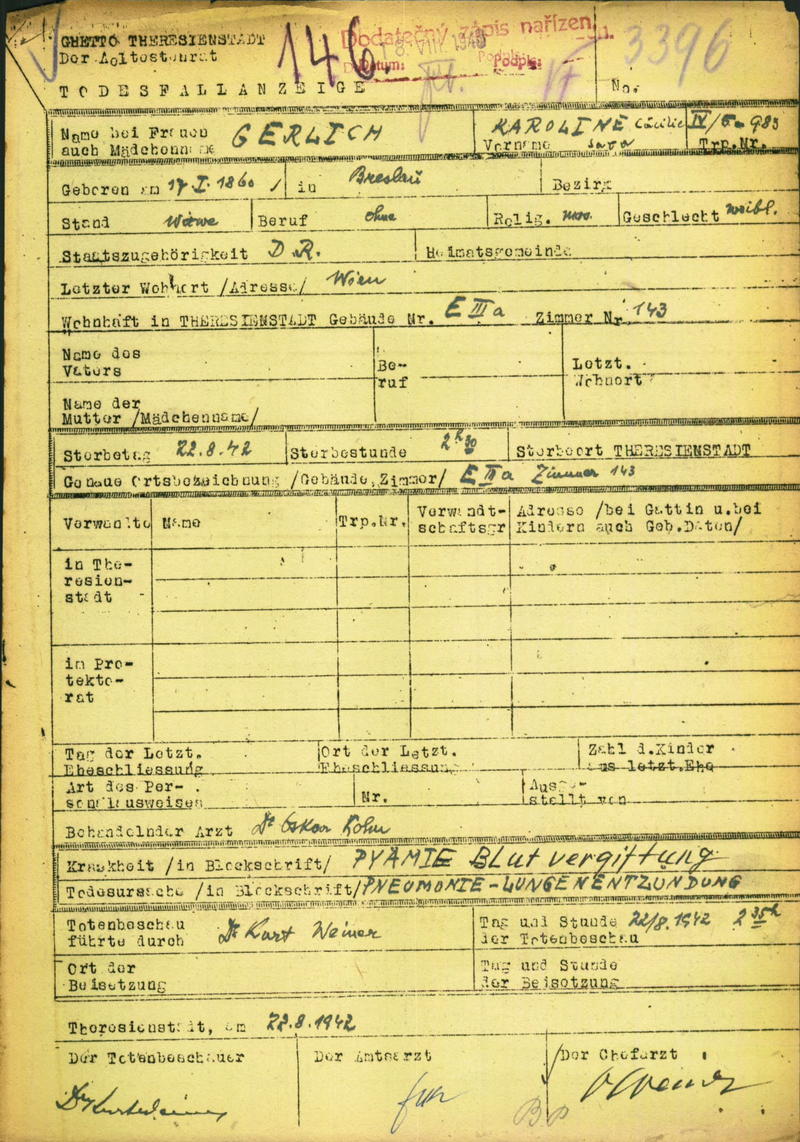 GHETTO THERESIENSTADT
Der Aeltestenrat
146.
Dodatečný zápis nařízen
VIII 1948
Datum: Podpis:
3396
TODESFALLANZEIGE
No.
Name bei Frauen auch Mädchenname GERLICH
KAROLINE Cäcilie Sara Vorname
IV/ 983 Trp.Nr.
Geboren am 17.I.1860 / in Breslau Bezirk
Stand Witwe Beruf ohne Relig. mos. Geschlecht weibl.
Staatszugehörigkeit D.R. Heimatsgemeinde
Letzter Wohnort /Adresse/ Wien
Wohnhaft in THERESIENSTADT Gebäude Nr. E IIIa Zimmer Nr. 143
Name des Vaters
Be-ruf
Letzt. Wohnort
Name der Mutter /Mädchenname/
Sterbetag 22.8.42 Sterbestunde 2 h 30 Sterbeort THERESIENSTADT
Genaue Ortsbezeichnung /Gebäude, Zimmer/ E IIIa Zimmer 143
Verwandte Name Trp.Nr. Verwandt-schaftsgr Adresse /bei Gattin u.bei Kindern auch Geb.Daten/
in The-
resien-
stadt
in Pro-
tekto-
rat
Tag der Letzt. Eheschliessung
Ort der Letzt. Eheschliessung
Zahl d.Kinder aus letzt.Ehe
Art des Per-sonalausweises
Nr.
Ausge-stellt von
Behandelnder Arzt Dr Oskar Kohn
Krankheit /in Blockschrift/ PYÄMIE Blutvergiftung
Todesursache /in Blockschrift/ PNEUMONIE - LUNGENENTZÜNDUNG
Totenbeschau führte durch Dr Kurt Weiner
Tag und Stunde der Totenbeschau 22/8.1942 2 35 h
Ort der Beisetzung
Tag und Stunde der Beisetzung
Theresienstadt, am 22.8.1942
Der Totenbeschauer Der Amtsarzt Der Chefarzt